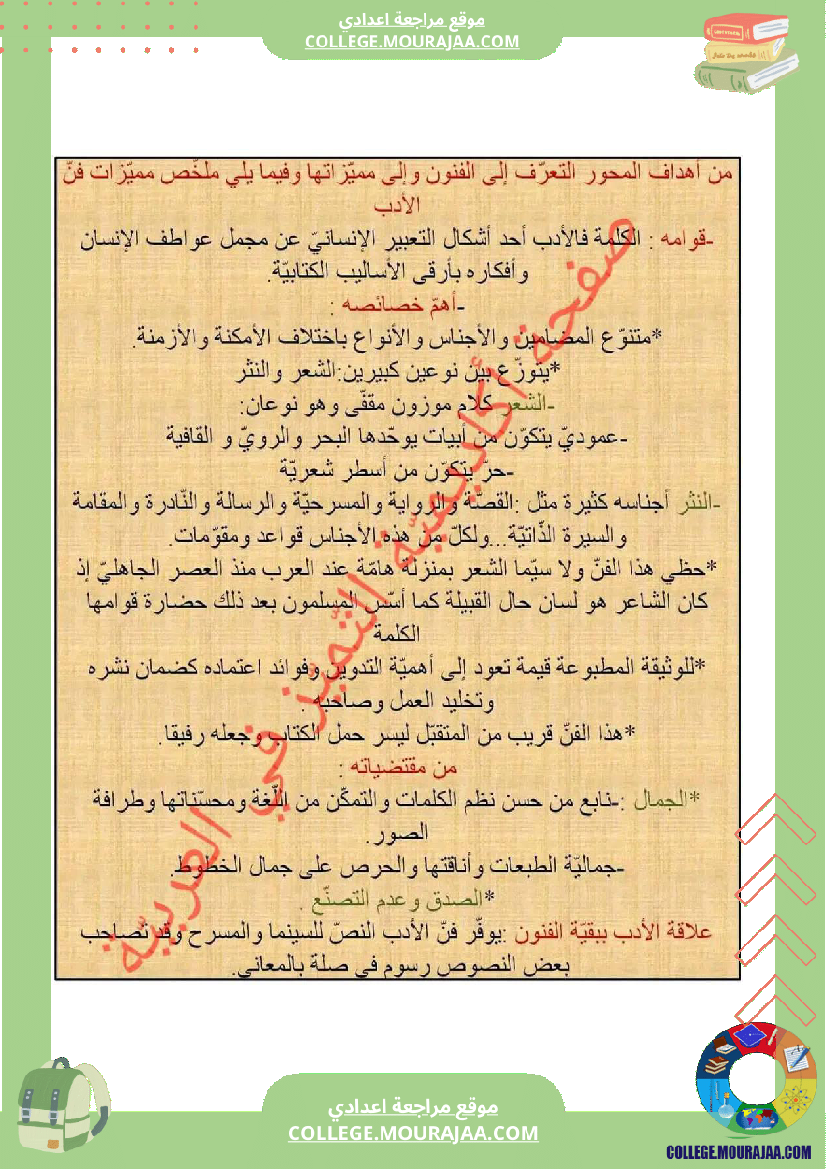 موقع مراجعة اعدادي
COLLEGE.MOURAJAA.COM
من أهداف المحور التعرّف إلى الفنون وإلى مميّزاتها وفيما يلي ملخّص مميّزات فنّ
الأدب
-قوامه : الكلمة فالأدب أحد أشكال التعبير الإنسانيّ عن مجمل عواطف الإنسان
وأفكاره بأرقى الأساليب الكتابيّة.
-أهمّ خصائصه :
*متنوّع المضامين والأجناس والأنواع باختلاف الأمكنة والأزمنة.
*يتوزّع بين نوعين كبيرين:الشعر والنثر
-الشعر كلام موزون مقفّى وهو نوعان:
-عموديّ يتكوّن من أبيات يوحّدها البحر والرويّ و القافية
-حرّ يتكوّن من أسطر شعريّة
-النثر أجناسه كثيرة مثل :القصّة والرواية والمسرحيّة والرسالة والنّادرة والمقامة
والسيرة الذّاتيّة...ولكلّ من هذه الأجناس قواعد ومقوّمات.
*حظي هذا الفنّ ولا سيّما الشعر بمنزلة هامّة عند العرب منذ العصر الجاهليّ إذ
كان الشاعر هو لسان حال القبيلة كما أسّس المسلمون بعد ذلك حضارة قوامها
الكلمة
*للوثيقة المطبوعة قيمة تعود إلى أهميّة التدوين وفوائد اعتماده كضمان نشره
وتخليد العمل وصاحبه .
*هذا الفنّ قريب من المتقبّل ليسر حمل الكتاب وجعله رفيقا.
من مقتضياته :
*الجمال :-نابع من حسن نظم الكلمات والتمكّن من اللّغة ومحسّناتها وطرافة
الصور.
-جماليّة الطبعات وأناقتها والحرص على جمال الخطوط.
*الصدق وعدم التصنّع .
علاقة الأدب ببقيّة الفنون :يوفّر فنّ الأدب النصّ للسينما والمسرح وقد تصاحب
بعض النصوص رسوم في صلة بالمعاني.
صفحة أكاديميّة التّميّز في العربيّة
موقع مراجعة اعدادي
COLLEGE.MOURAJAA.COM
COLLEGE.MOURAJAA.COM